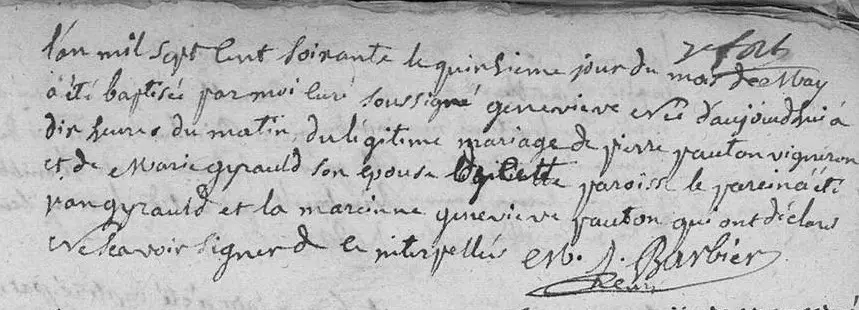 L'an mil sept cent soixante le quinsieme jour du mois de May
a été baptisée par moi curé soussigné genevieve née d'aujourdhui à
dix heures du matin du légitime mariage de pierre pauton vigneron
et de Marie gyrauld son épouse de cette paroisse le parein a été
jean gyrauld et la mareinne genevieve pauton qui ont déclaré
ne sçavoir signer de ce interpellés M. J. Barbier